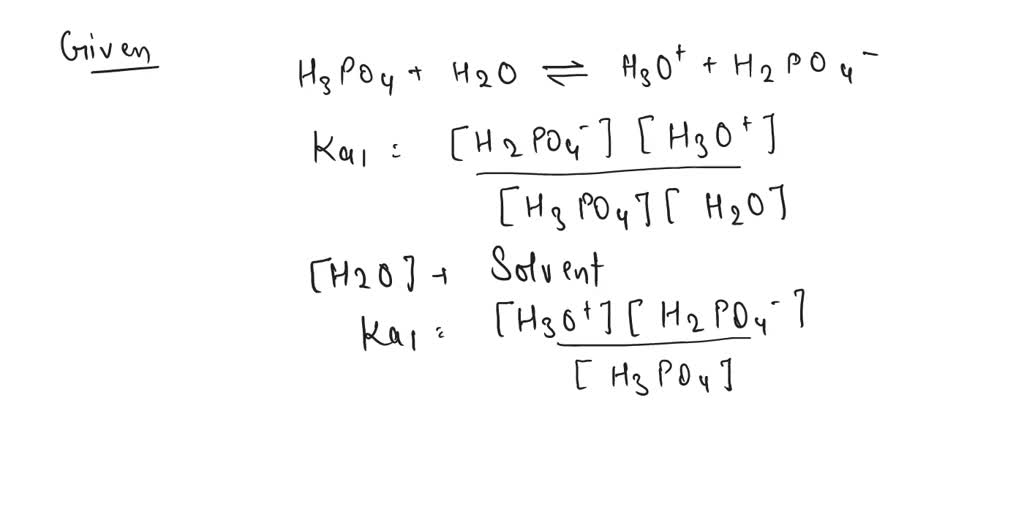 Given
H₃PO₄ + H₂O ⇌ H₃O⁺ + H₂PO₄⁻
Ka₁ = [H₂PO₄⁻] [H₃O⁺]
[H₃PO₄] [H₂O]
[H₂O] → Solvent
Ka₁ = [H₃O⁺] [H₂PO₄⁻]
[H₃PO₄]